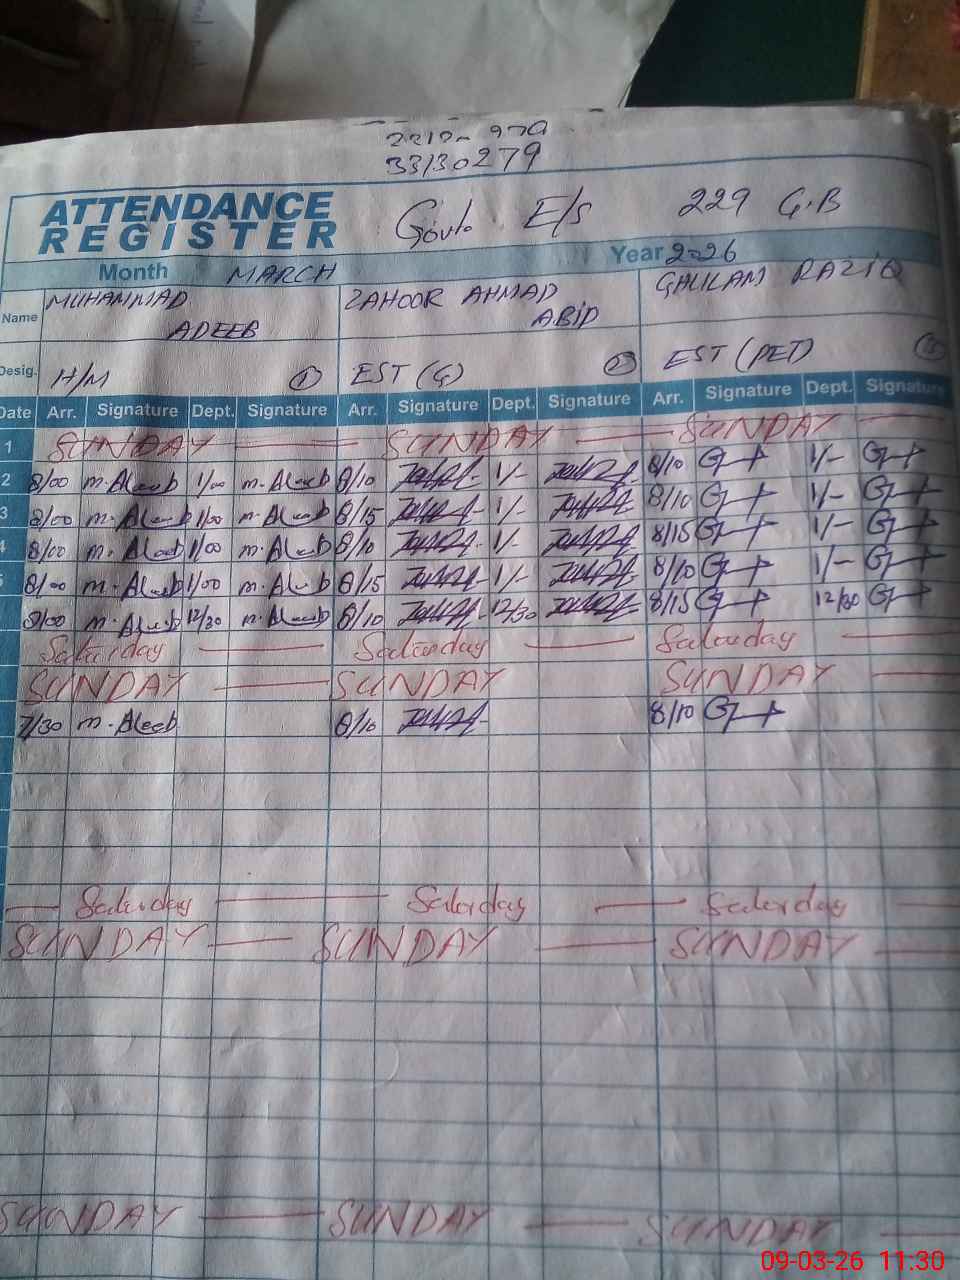 33130279
ATTENDANCE
REGISTER
Govt. E/S 229 G.B
Month MARCH Year 2026
Name MUHAMMAD ADEEB ZAHOOR AHMAD ABID GHULAM RAZIQ
Desig. H/M 1 EST (G) 2 EST (PET)
Date Arr. Signature Dept. Signature Arr. Signature Dept. Signature Arr. Signature Dept. Signature
1 SUNDAY SUNDAY SUNDAY
2 8/00 m.Aleeb 1/00 m.Aleeb 8/10 1/- 8/10 1/-
3 8/00 m.Aleeb 1/00 m.Aleeb 8/15 1/- 8/10 1/-
4 8/00 m.Aleeb 1/00 m.Aleeb 8/10 1/- 8/15 1/-
5 8/00 m.Aleeb 1/00 m.Aleeb 8/15 1/- 8/10 1/-
8/00 m.Aleeb 12/30 m.Aleeb 8/10 12/30 8/15 12/30
Saturday Saturday Saturday
SUNDAY SUNDAY SUNDAY
7/30 m.Aleeb 8/10 8/10
Saturday Saturday Saturday
SUNDAY SUNDAY SUNDAY
SUNDAY SUNDAY SUNDAY
09-03-26 11:30